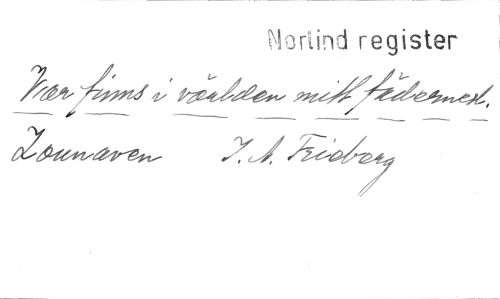 Norlind register
Var finns i världen mitt fädernesl.
Lounaven J. A. Frieberg